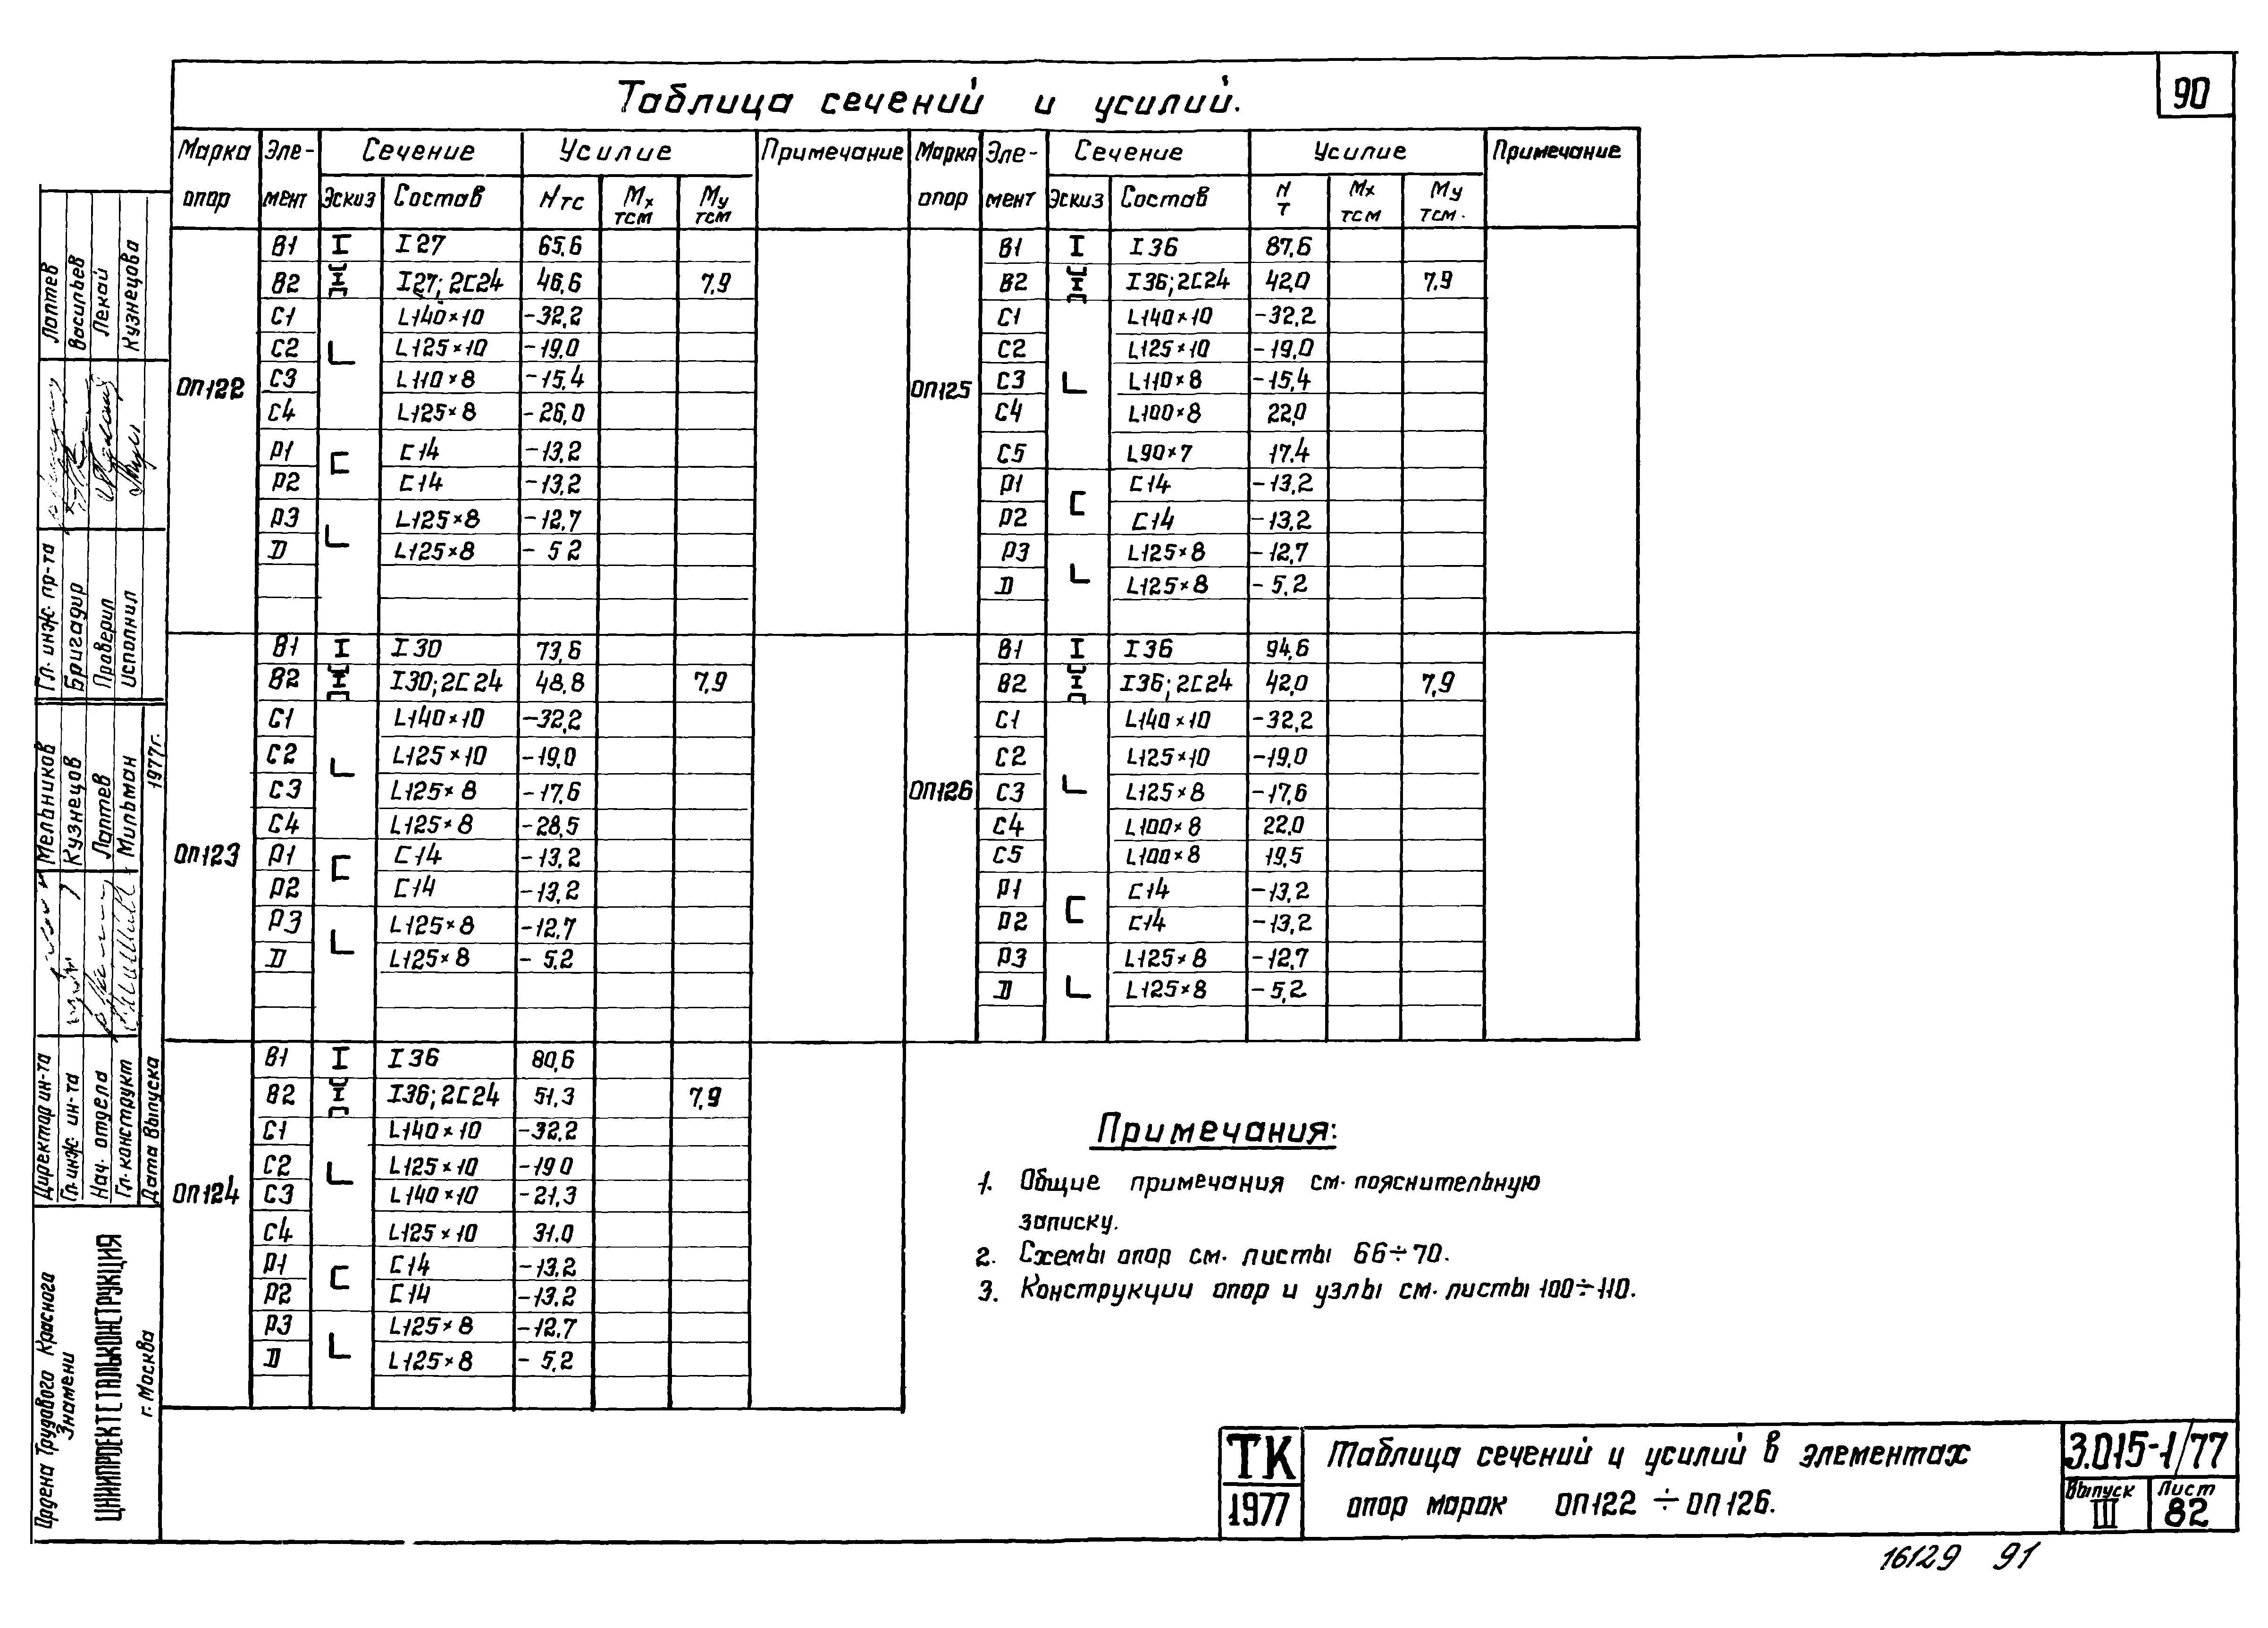 90
Таблица сечений и усилий.
Марка опор Эле-мент Сечение Усилие Примечание Марка опор Эле-мент Сечение Усилие Примечание
Эскиз Состав Nтс Mx тсм My тсм Эскиз Состав N т Mx тсм My тсм.
ОП122
В1 I I27 65,6
В2 I27; 2С24 46,6 7,9
С1 L140×10 -32,2
С2 L125×10 -19,0
С3 L110×8 -15,4
С4 L125×8 -26,0
Р1 С14 -13,2
Р2 С14 -13,2
Р3 L125×8 -12,7
D L125×8 - 5 2
ОП123
В1 I I30 73,6
В2 I30; 2С24 48,8 7,9
С1 L140×10 -32,2
С2 L125×10 -19,0
С3 L125×8 -17,6
С4 L125×8 -28,5
Р1 С14 -13,2
Р2 С14 -13,2
Р3 L125×8 -12,7
D L125×8 - 5,2
ОП124
В1 I I36 80,6
В2 I36; 2С24 51,3 7,9
С1 L140×10 -32,2
С2 L125×10 -19 0
С3 L140×10 -21,3
С4 L125×10 31.0
Р1 С14 -13,2
Р2 С14 -13,2
Р3 L125×8 -12,7
D L125×8 - 5,2
ОП125
В1 I I36 87,6
В2 I36; 2С24 42,0 7,9
С1 L140×10 -32,2
С2 L125×10 -19,0
С3 L110×8 -15,4
С4 L100×8 22,0
С5 L90×7 17,4
Р1 С14 -13,2
Р2 С14 -13,2
Р3 L125×8 -12,7
D L125×8 - 5,2
ОП126
В1 I I36 94,6
В2 I36; 2С24 42,0 7,9
С1 L140×10 -32,2
С2 L125×10 -19,0
С3 L125×8 -17,6
С4 L100×8 22,0
С5 L100×8 19,5
Р1 С14 -13,2
Р2 С14 -13,2
Р3 L125×8 -12,7
D L125×8 - 5,2
Примечания:
1. Общие примечания см. пояснительную
записку.
2. Схемы опор см. листы 66÷70.
3. Конструкции опор и узлы см. листы 100÷110.
ТК
1977
Таблица сечений и усилий в элементах
опор марок ОП122÷ОП126.
3.015-1/77
Выпуск III
Лист 82
16129 91
Гл. инж. пр-та Лаптев
Бригадир Васильев
Проверил Лекай
Исполнил Кузнецова
Директор ин-та Мельников
Гл. инж. ин-та Кузнецов
Нач. отдела Лаптев
Гл. конструкт Мильман
Дата выпуска 1977г.
Ордена Трудового Красного
Знамени
ЦНИИПРОЕКТСТАЛЬКОНСТРУКЦИЯ
г. Москва